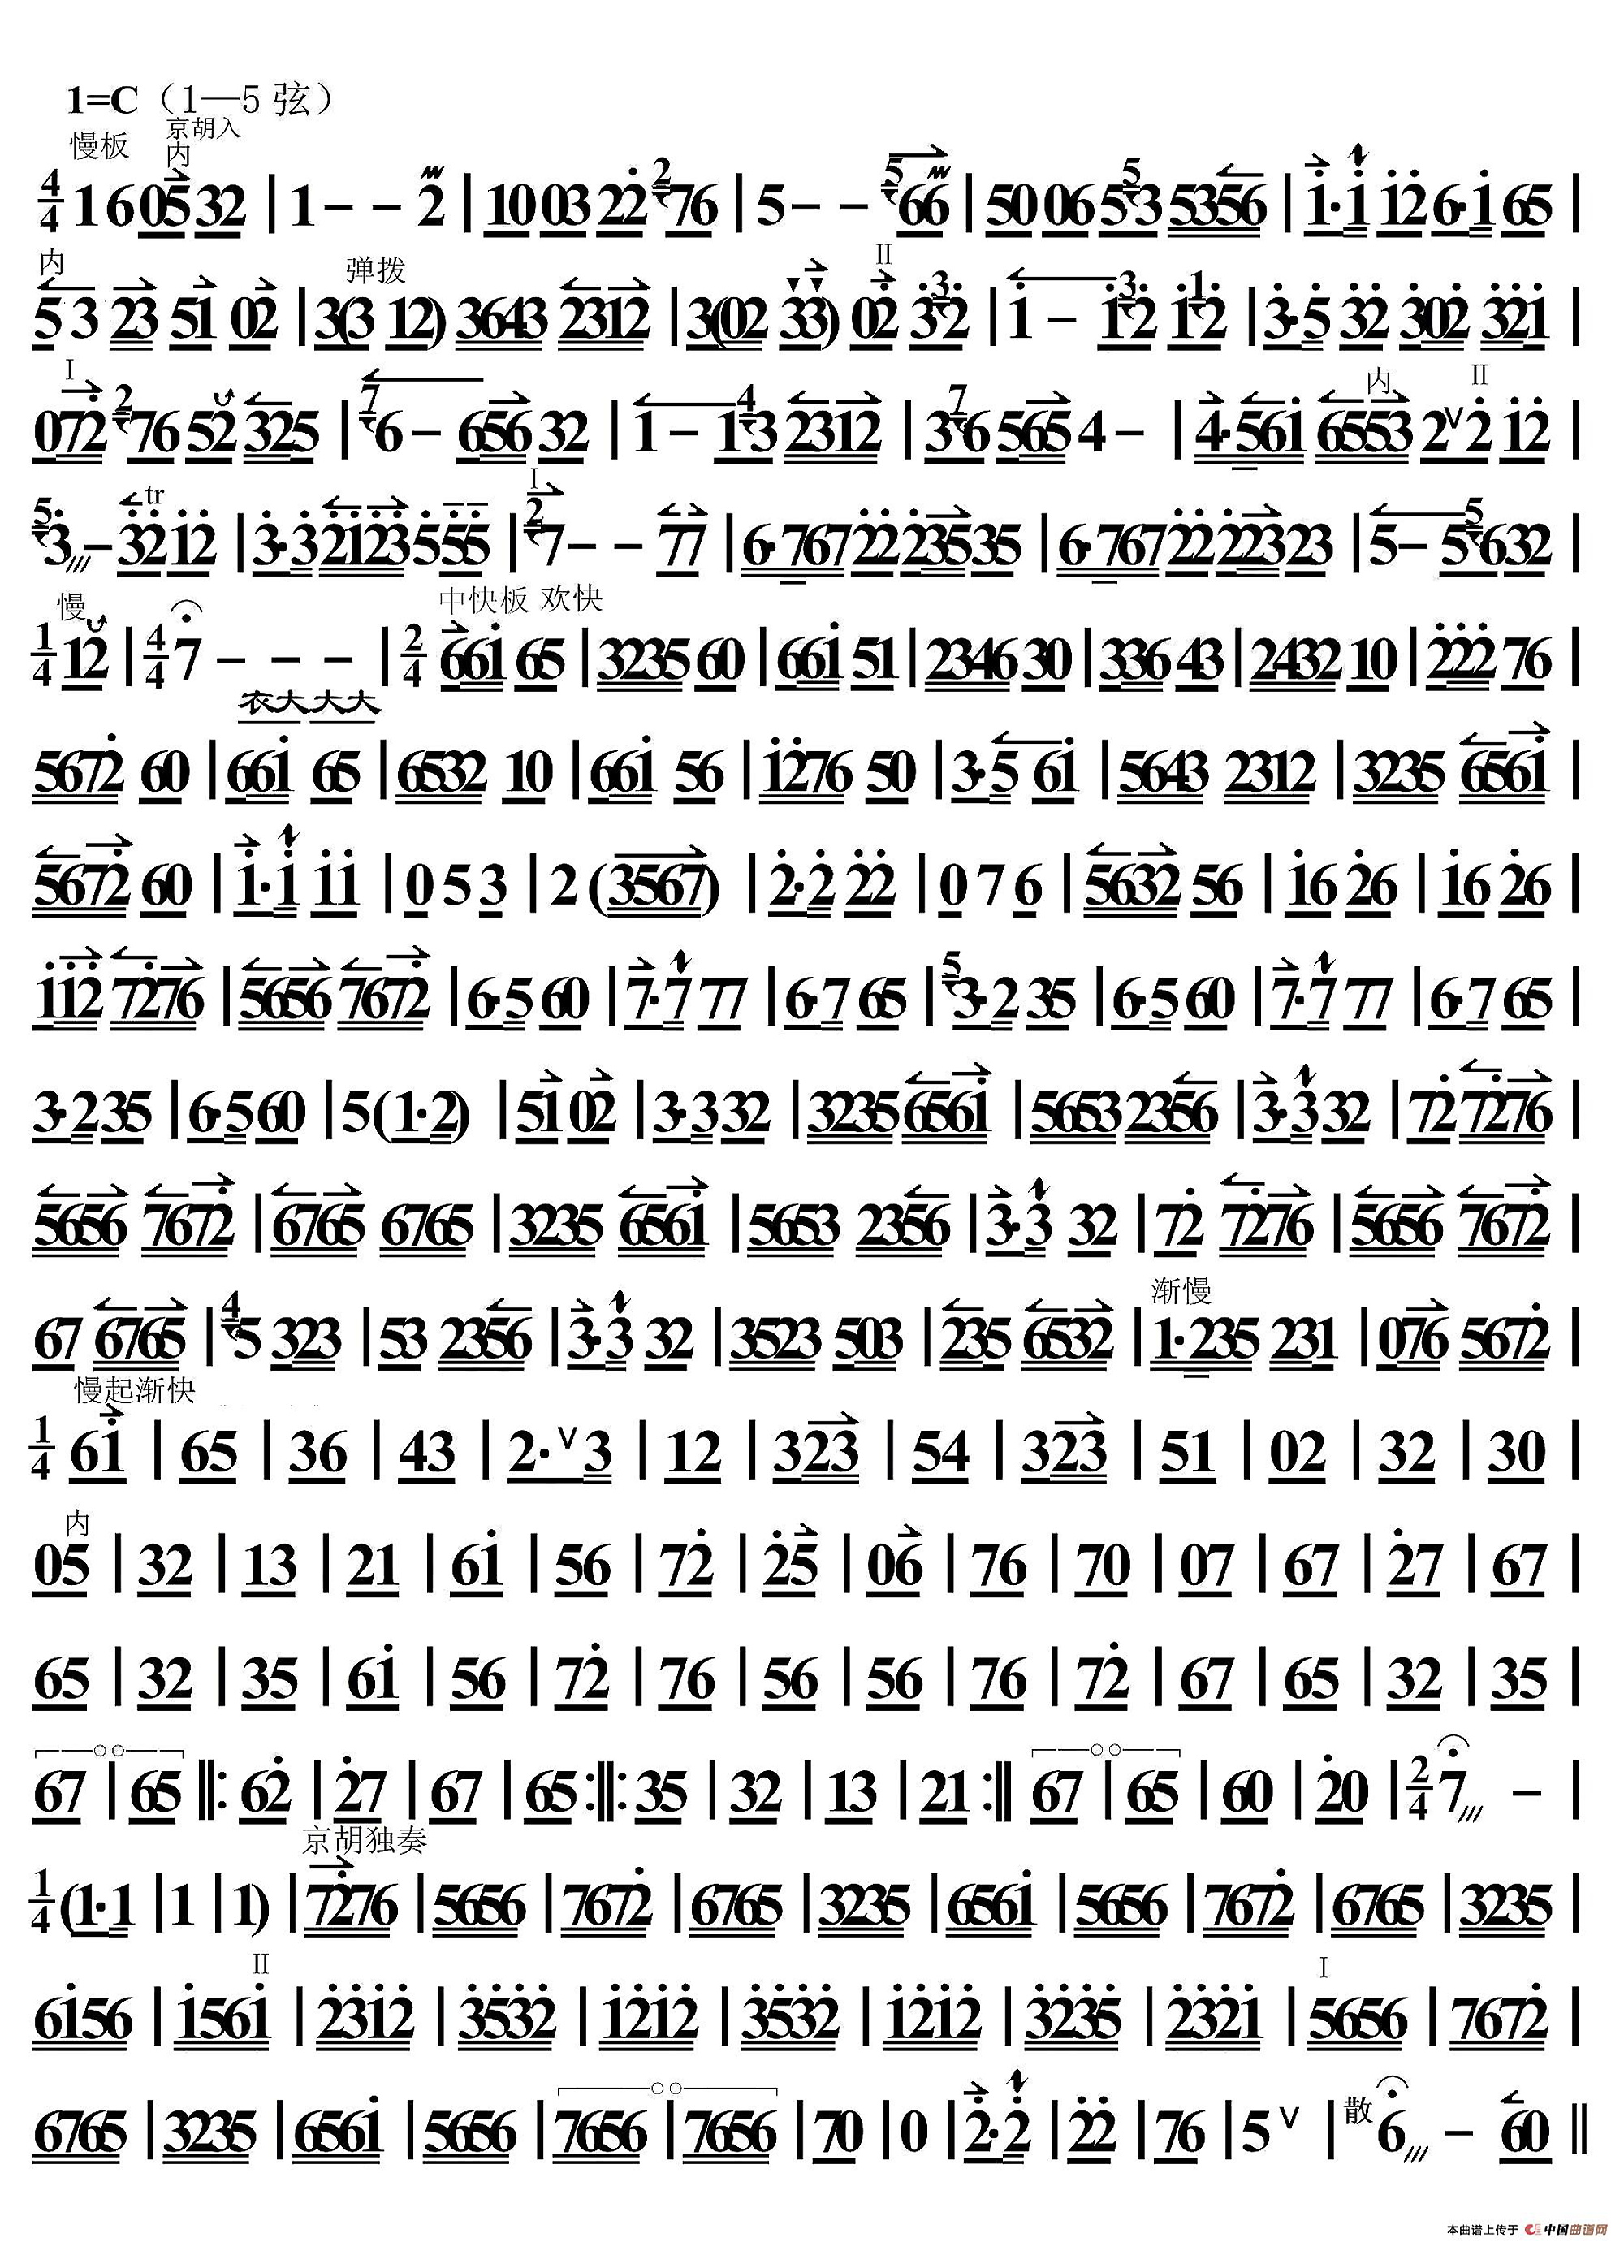 1=C（1—5 弦）
慢板 京胡入
内
4/4 1 6 05 32 | 1 - - 2 | 10 03 22̇ 2 76 | 5 - - 5 66 | 50 06 5 5 3 5356 | i̇· i̇ i̇2̇ 6·i̇ 65 |
内 弹拨 II
5 3 23 51 02 | 3(3 12) 3643 2312 | 3(02 33) 02̇ 3̇ 3 2̇ | i̇ - i̇ 3 2̇ i̇ 1 2̇ | 3̇·5̇ 3̇2̇ 3̇02̇ 3̇2̇i̇ |
I 内 II
072̇ 2 76 52 325 | 7 6 - 656 32 | 1 - 1 4 3 2312 | 3 7 6 565 4 - | 4·561̇ 6553 2 V 2̇ i̇2̇ |
tr I
5 3̇ - 3̇2̇ i̇2̇ | 3̇·3̇ 2̇i̇2̇3̇ 5̇ 5̇5̇ | 2 7 - - 77 | 6·767 2̇2̇ 2̇35 35 | 6·767 2̇2̇ 2̇23 23 | 5 - 5 5 6 32 |
慢 中快板 欢快
1/4 12 | 4/4 7 - - - | 2/4 66i̇ 65 | 3235 60 | 66i̇ 51 | 2346 30 | 336 43 | 2432 10 | 2̇2̇2̇ 76 |
衣大大大
5672̇ 60 | 66i̇ 65 | 6532 10 | 66i̇ 56 | i̇2̇76 50 | 3·5 6i̇ | 5643 2312 | 3235 656i̇ |
5672̇ 60 | i̇·i̇ i̇i̇ | 0 5 3 | 2 (3567) | 2̇·2̇ 2̇2̇ | 0 7 6 | 5632 56 | i̇6 2̇6 | i̇6 2̇6 |
i̇i̇2̇ 72̇76 | 5656 7672̇ | 6·5 60 | 7·7 77 | 6·7 65 | 5 3·2 35 | 6·5 60 | 7·7 77 | 6·7 65 |
3·2 35 | 6·5 60 | 5 (1·2) | 51 02 | 3·3 32 | 3235 656i̇ | 5653 2356 | 3·3 32 | 72̇ 72̇76 |
5656 7672̇ | 6765 6765 | 3235 656i̇ | 5653 2356 | 3·3 32 | 72̇ 72̇76 | 5656 7672̇ |
渐慢
67 6765 | 4 5 323 | 53 2356 | 3·3 32 | 3523 503 | 235 6532 | 1·235 231 | 076 5672̇ |
慢起渐快
1/4 6i̇ | 65 | 36 | 43 | 2· V 3 | 12 | 323 | 54 | 323 | 51 | 02 | 32 | 30 |
内
05 | 32 | 13 | 21 | 6i̇ | 56 | 72̇ | 2̇5 | 06 | 76 | 70 | 07 | 67 | 2̇7 | 67 |
65 | 32 | 35 | 6i̇ | 56 | 72̇ | 76 | 56 | 56 | 76 | 72̇ | 67 | 65 | 32 | 35 |
67 | 65 ‖: 62̇ | 2̇7 | 67 | 65 :‖: 35 | 32 | 13 | 21 :‖ 67 | 65 | 60 | 2̇0 | 2/4 7 - |
京胡独奏
1/4 (1·1 | 1 | 1) | 72̇76 | 5656 | 7672̇ | 6765 | 3235 | 656i̇ | 5656 | 7672̇ | 6765 | 3235 |
II I
6i̇56 | i̇56i̇ | 2̇3̇i̇2̇ | 3̇5̇3̇2̇ | i̇2̇i̇2̇ | 3̇5̇3̇2̇ | i̇2̇i̇2̇ | 3̇2̇3̇5̇ | 2̇3̇2̇i̇ | 5656 | 7672̇ |
6765 | 3235 | 656i̇ | 5656 | 7656 | 7656 | 70 | 0 | 2̇·2̇ | 2̇2̇ | 76 | 5 V | 散 6 - 60 ‖
本曲谱上传于 中国曲谱网